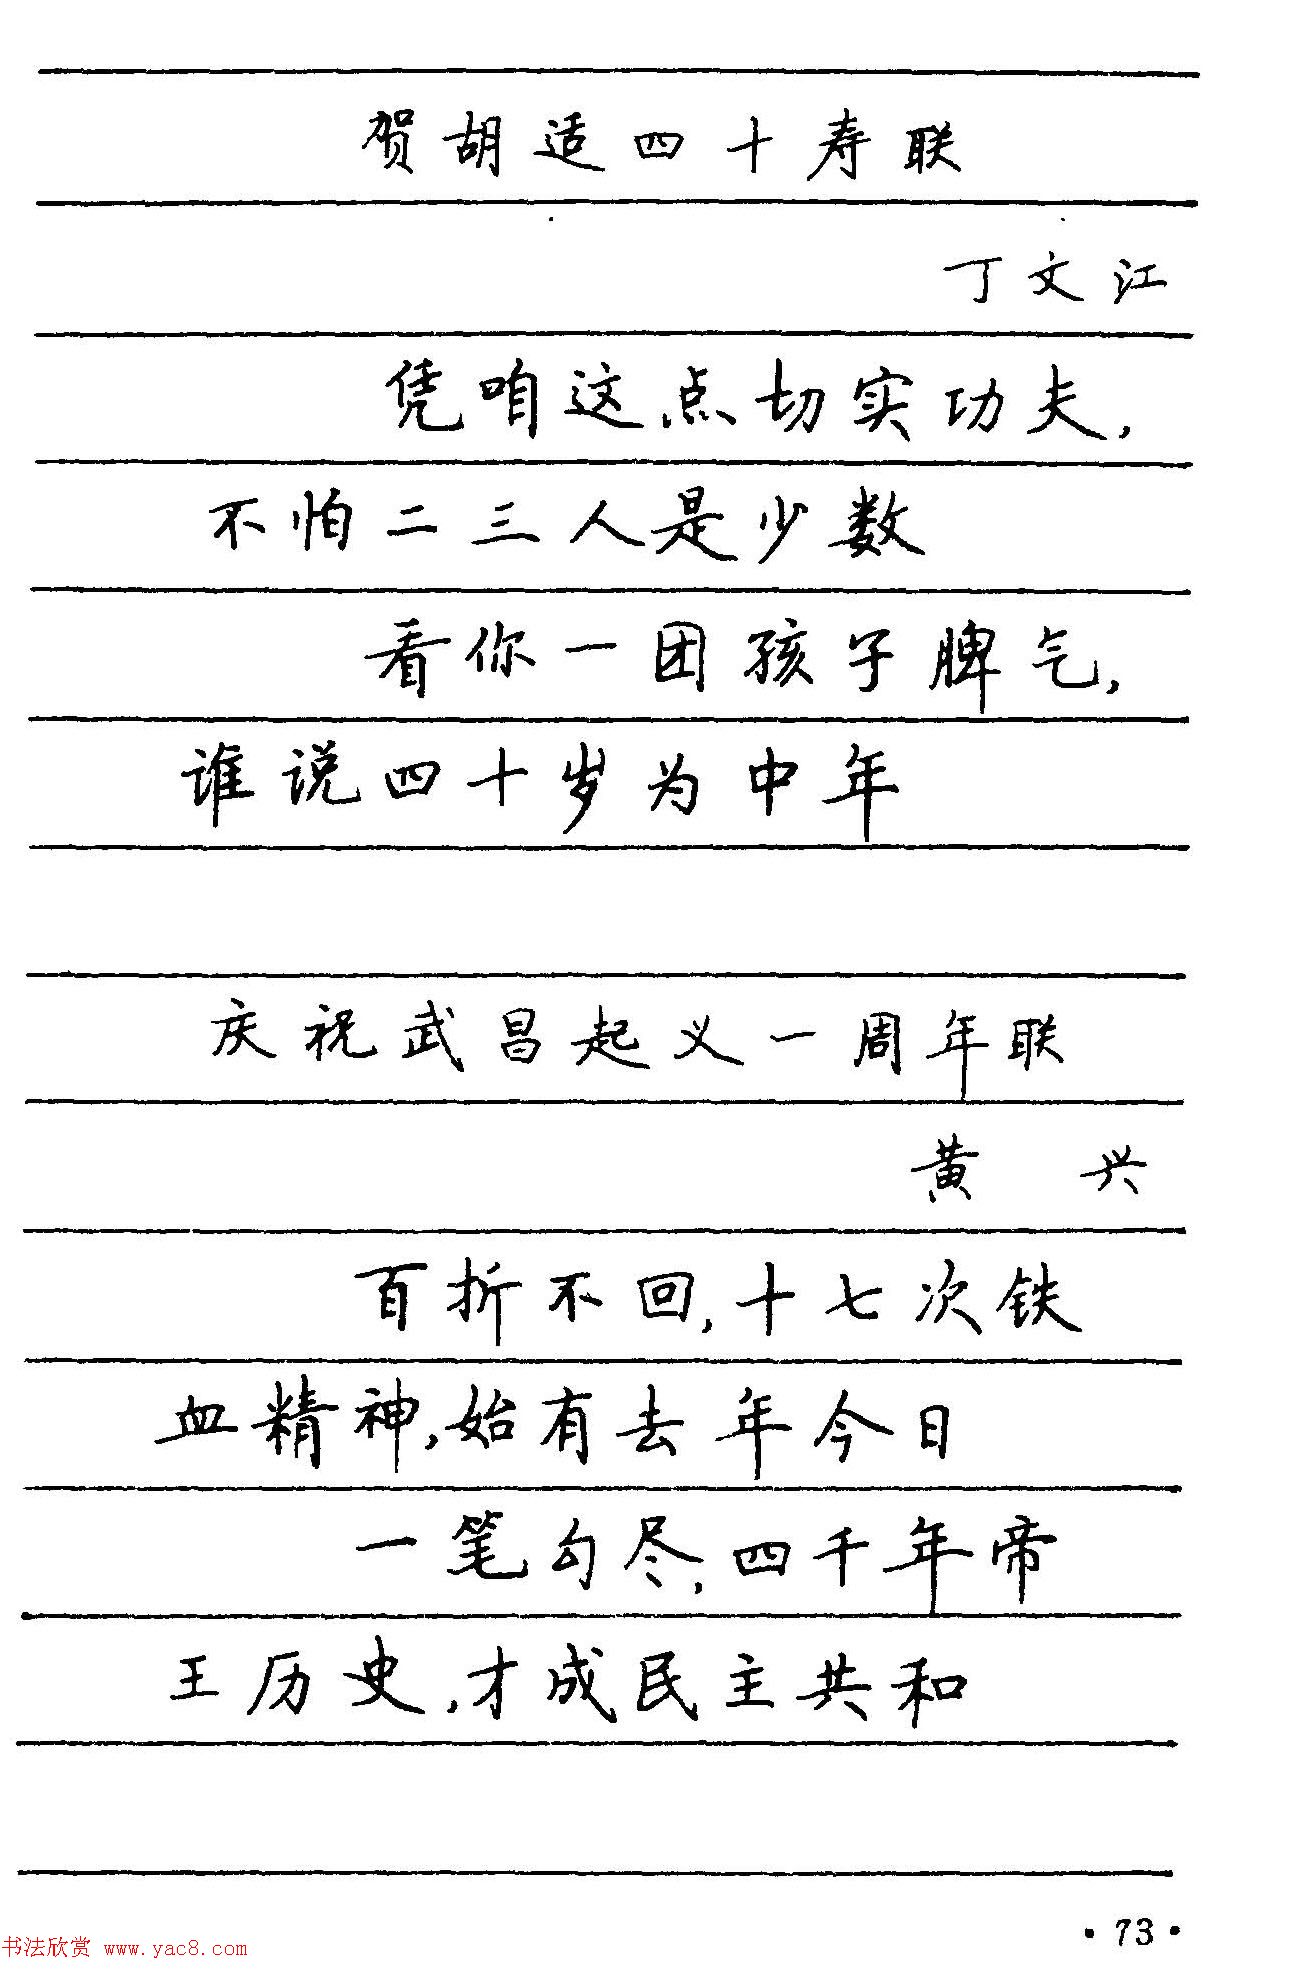 贺胡适四十寿联
丁文江
凭咱这点切实功夫，
不怕二三人是少数
看你一团孩子脾气，
谁说四十岁为中年
庆祝武昌起义一周年联
黄 兴
百折不回，十七次铁
血精神，始有去年今日
一笔勾尽，四千年帝
王历史，才成民主共和
·73·
书法欣赏 www.yac8.com